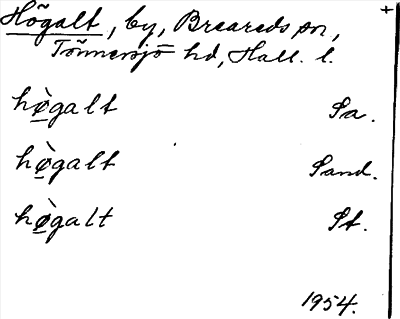 Högalt, by, Breareds sn, +
Tönnersjö hd, Hall. l.
hø̀galt Sa.
hø̀galt Sand.
hø̀galt St.
1954.